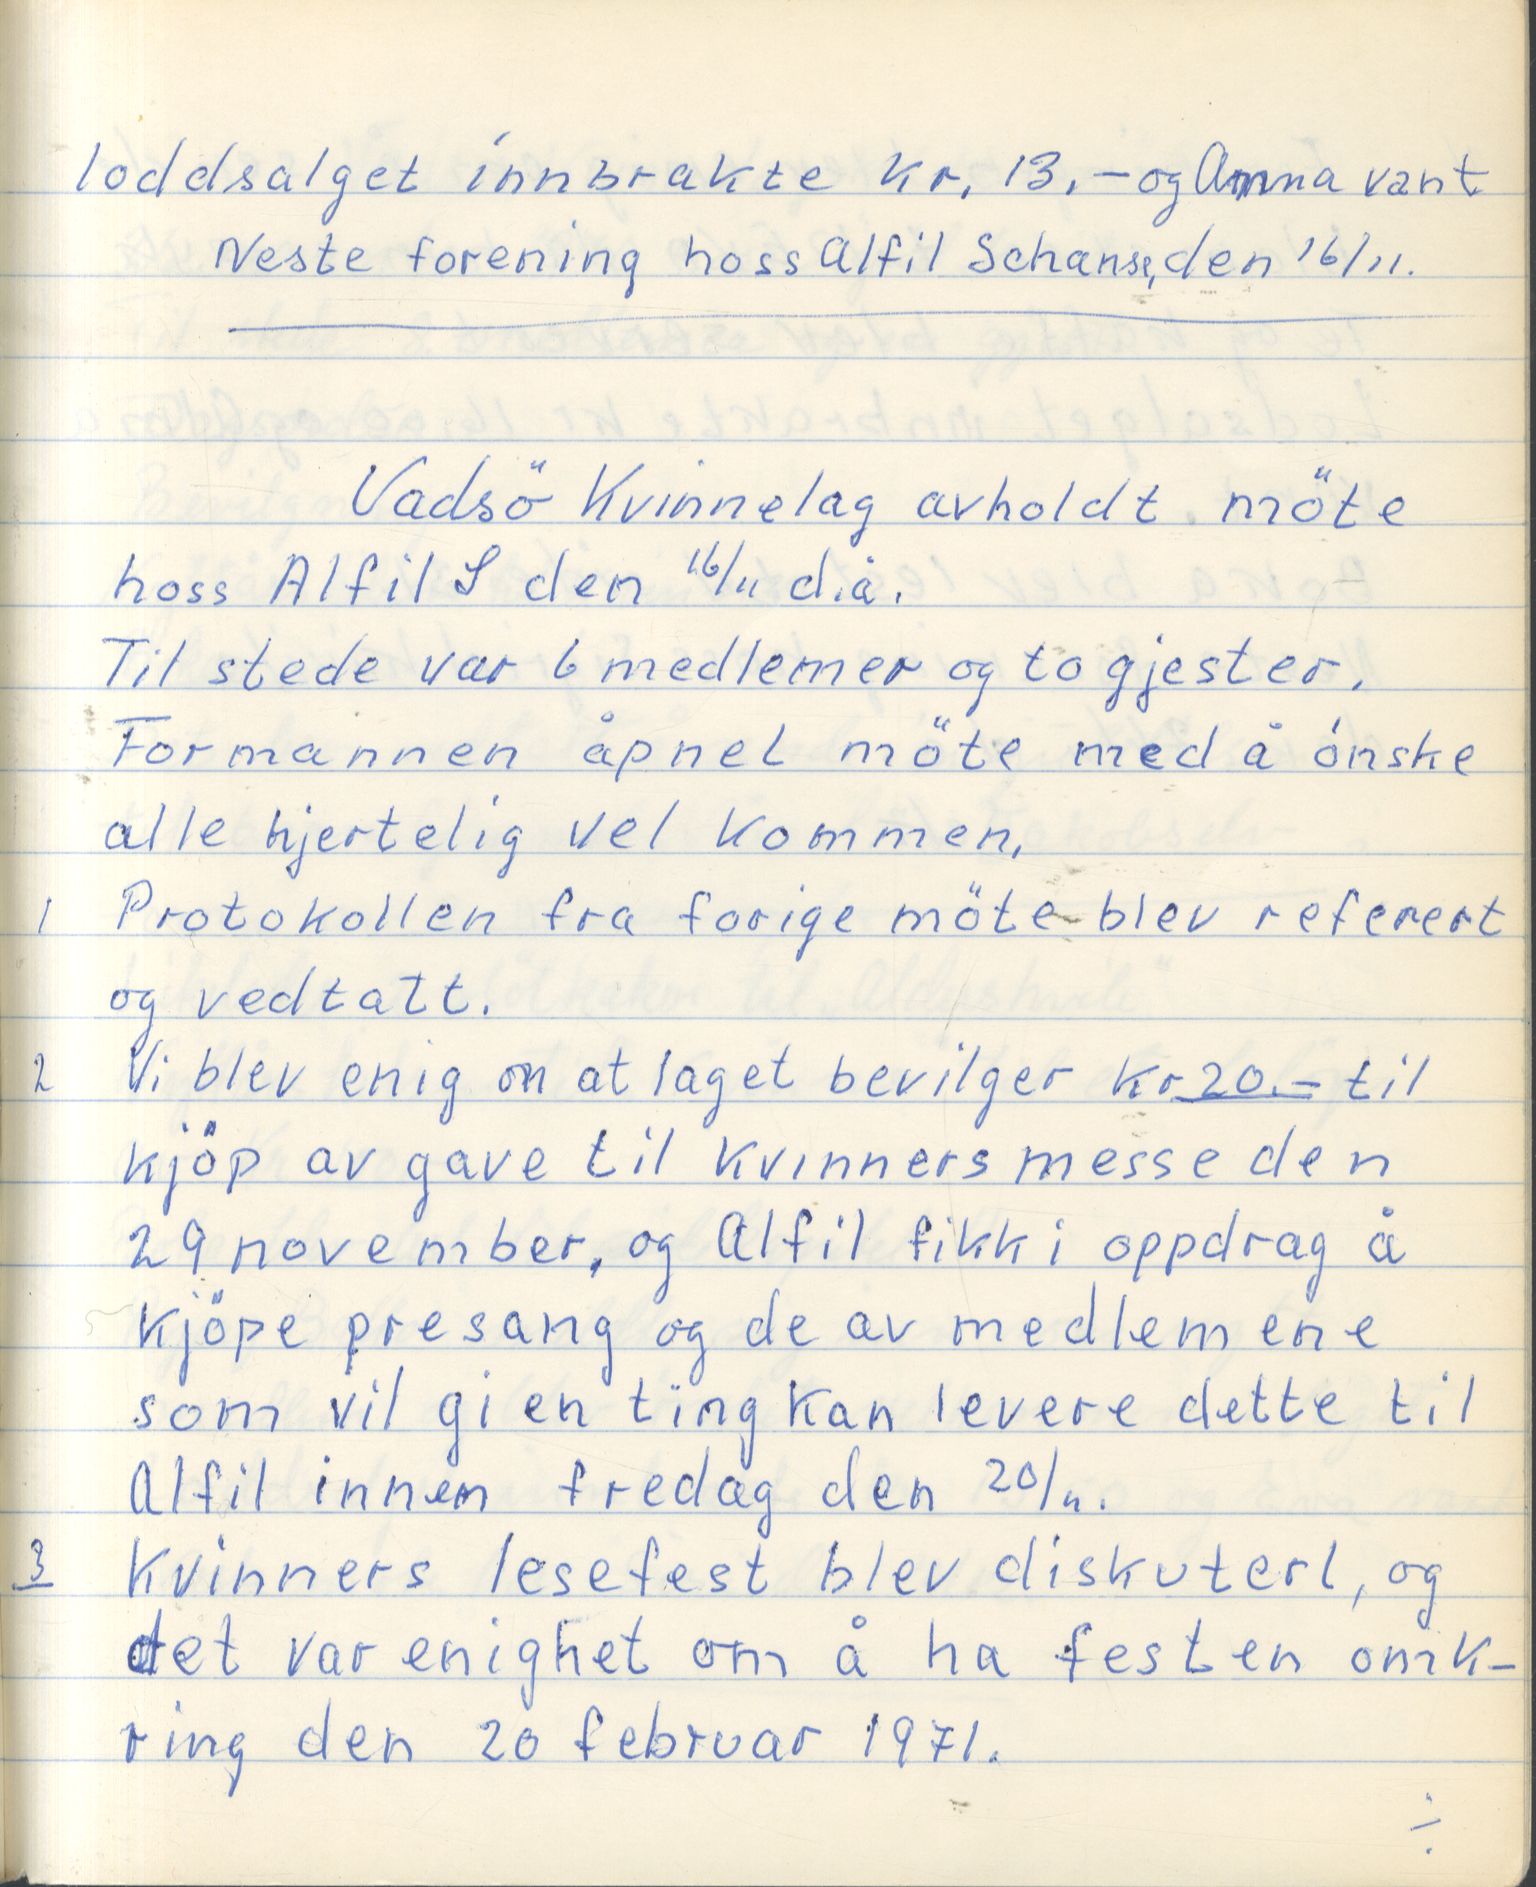 loddsalget innbrakte kr. 13.- og Anna vant
Neste forening hoss Alfil Schanse, den 16/11.
Vadsö Kvinnelag avholdt möte
hoss Alfil S den 16/11 d.å.
Til stede var 6 medlemer og to gjester.
Formannen åpnet möte med å ónske
alle hjertelig vel kommen.
1 Protokollen fra forige möte blev referert
og vedtatt.
2 Vi blev enig om at laget bevilger kr 20.- til
kjöp av gave til kvinners messe den
29 november, og Alfil fikk i oppdrag å
kjöpe presang og de av medlemene
som vil gi en ting kan levere dette til
Alfil innen fredag den 20/11.
3 Kvinners lesefest blev diskutert, og
det var enighet om å ha festen omk-
ring den 20 februar 1971.
÷